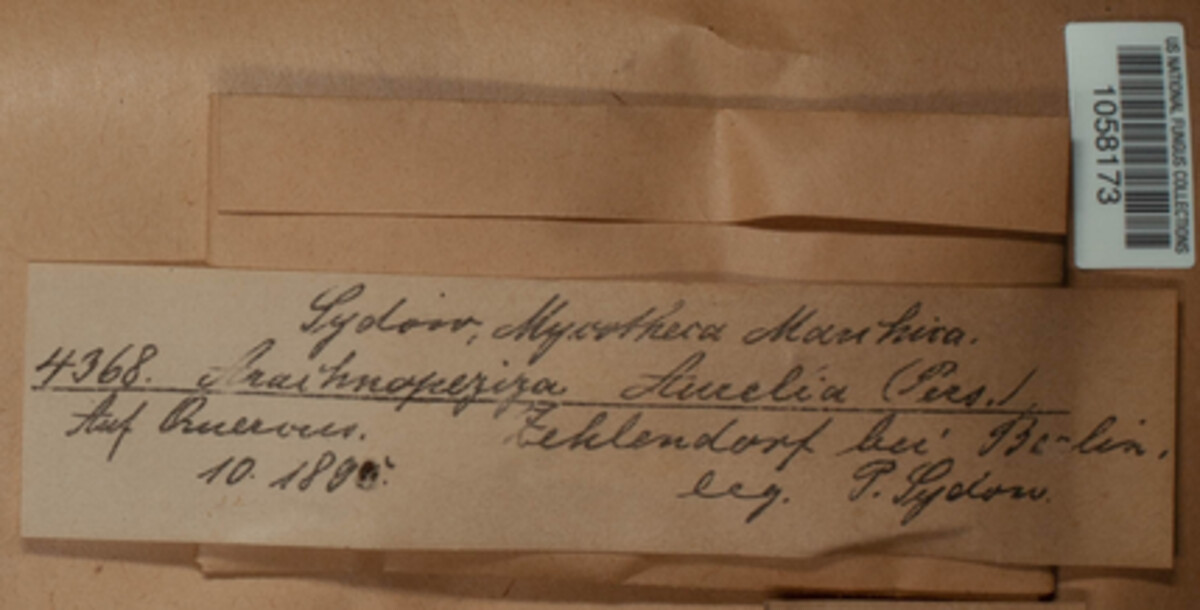 Sydow, Mycotheca Marchica.
4368. Arachnopeziza Aurelia (Pers.)
Auf Quercus. Zehlendorf bei Berlin.
10. 1895. leg. P. Sydow.
US NATIONAL FUNGUS COLLECTIONS
1058173